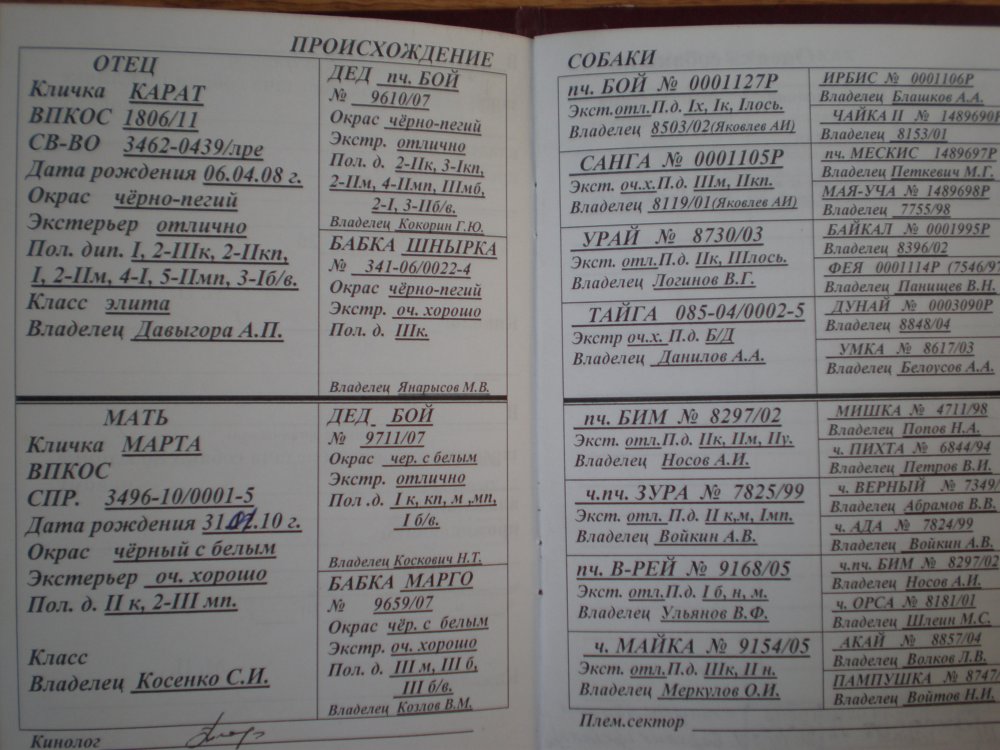 ПРОИСХОЖДЕНИЕ
ОТЕЦ
Кличка КАРАТ
ВПКОС 1806/11
СВ-ВО 3462-0439/лре
Дата рождения 06.04.08 г.
Окрас чёрно-пегий
Экстерьер отлично
Пол. дип. I, 2-IIIк, 2-IIкп,
I, 2-IIм, 4-I, 5-IIмп, 3-Iб/в.
Класс элита
Владелец Давыгора А.П.
ДЕД пч. БОЙ
№ 9610/07
Окрас чёрно-пегий
Экстр. отлично
Пол. д. 2-IIк, 3-Iкп,
2-IIм, 4-IIмп, IIIмб,
2-I, 3-IIб/в.
Владелец Кокорин Г.Ю.
БАБКА ШНЫРКА
№ 341-06/0022-4
Окрас чёрно-пегий
Экстр. оч. хорошо
Пол. д. IIIк.
Владелец Янарысов М.В.
МАТЬ
Кличка МАРТА
ВПКОС
СПР. 3496-10/0001-5
Дата рождения 31. .10 г.
Окрас чёрный с белым
Экстерьер оч. хорошо
Пол. д. II к, 2-III мп.
Класс
Владелец Косенко С.И.
ДЕД БОЙ
№ 9711/07
Окрас чер. с белым
Экстр. отлично
Пол .д. I к, кп, м ,мп,
I б/в.
Владелец Коскович Н.Т.
БАБКА МАРГО
№ 9659/07
Окрас чёр. с белым
Экстр. оч. хорошо
Пол. д. III м, III б,
III б/в.
Владелец Козлов В.М.
Кинолог
СОБАКИ
пч. БОЙ № 0001127Р
Экст.отл.П.д. Iх, Iк, Iлось.
Владелец 8503/02(Яковлев АИ)
САНГА № 0001105Р
Экст. оч.х.П.д. IIIм, IIкп.
Владелец 8119/01(Яковлев АИ)
УРАЙ № 8730/03
Экст. отл.П.д. IIк, IIIлось.
Владелец Логинов В.Г.
ТАЙГА 085-04/0002-5
Экстр оч.х. П.д. Б/Д
Владелец Данилов А.А.
ИРБИС № 0001106Р
Владелец Блашков А.А.
ЧАЙКА II № 1489690Р
Владелец 8153/01
пч. МЕСКИС 1489697Р
Владелец Петкевич М.Г.
МАЯ-УЧА № 1489698Р
Владелец 7755/98
БАЙКАЛ № 0001995Р
Владелец 8396/02
ФЕЯ 0001114Р (7546/97
Владелец Панищев В.Н.
ДУНАЙ № 0003090Р
Владелец 8848/04
УМКА № 8617/03
Владелец Белоусов А.А.
пч. БИМ № 8297/02
Экст. отл.П.д. IIк, IIм, IIу.
Владелец Носов А.И.
ч.пч. ЗУРА № 7825/99
Экст. отл. П.д. II к,м, Iмп.
Владелец Войкин А.В.
пч. В-РЕЙ № 9168/05
Экст. отл.П.д. I б, н, м.
Владелец Ульянов В.Ф.
ч. МАЙКА № 9154/05
Экст. отл.П.д. IIIк, II н.
Владелец Меркулов О.И.
МИШКА № 4711/98
Владелец Попов Н.А.
ч. ПИХТА № 6844/94
Владелец Петров В.И.
ч. ВЕРНЫЙ № 7349/
Владелец Абрамов В.В.
ч. АДА № 7824/99
Владелец Войкин А.В.
ч.пч. БИМ № 8297/02
Владелец Носов А.И.
ч. ОРСА № 8181/01
Владелец Шлеин М.С.
АКАЙ № 8857/04
Владелец Волков Л.В.
ПАМПУШКА № 8747/
Владелец Войтов Н.И.
Плем.сектор